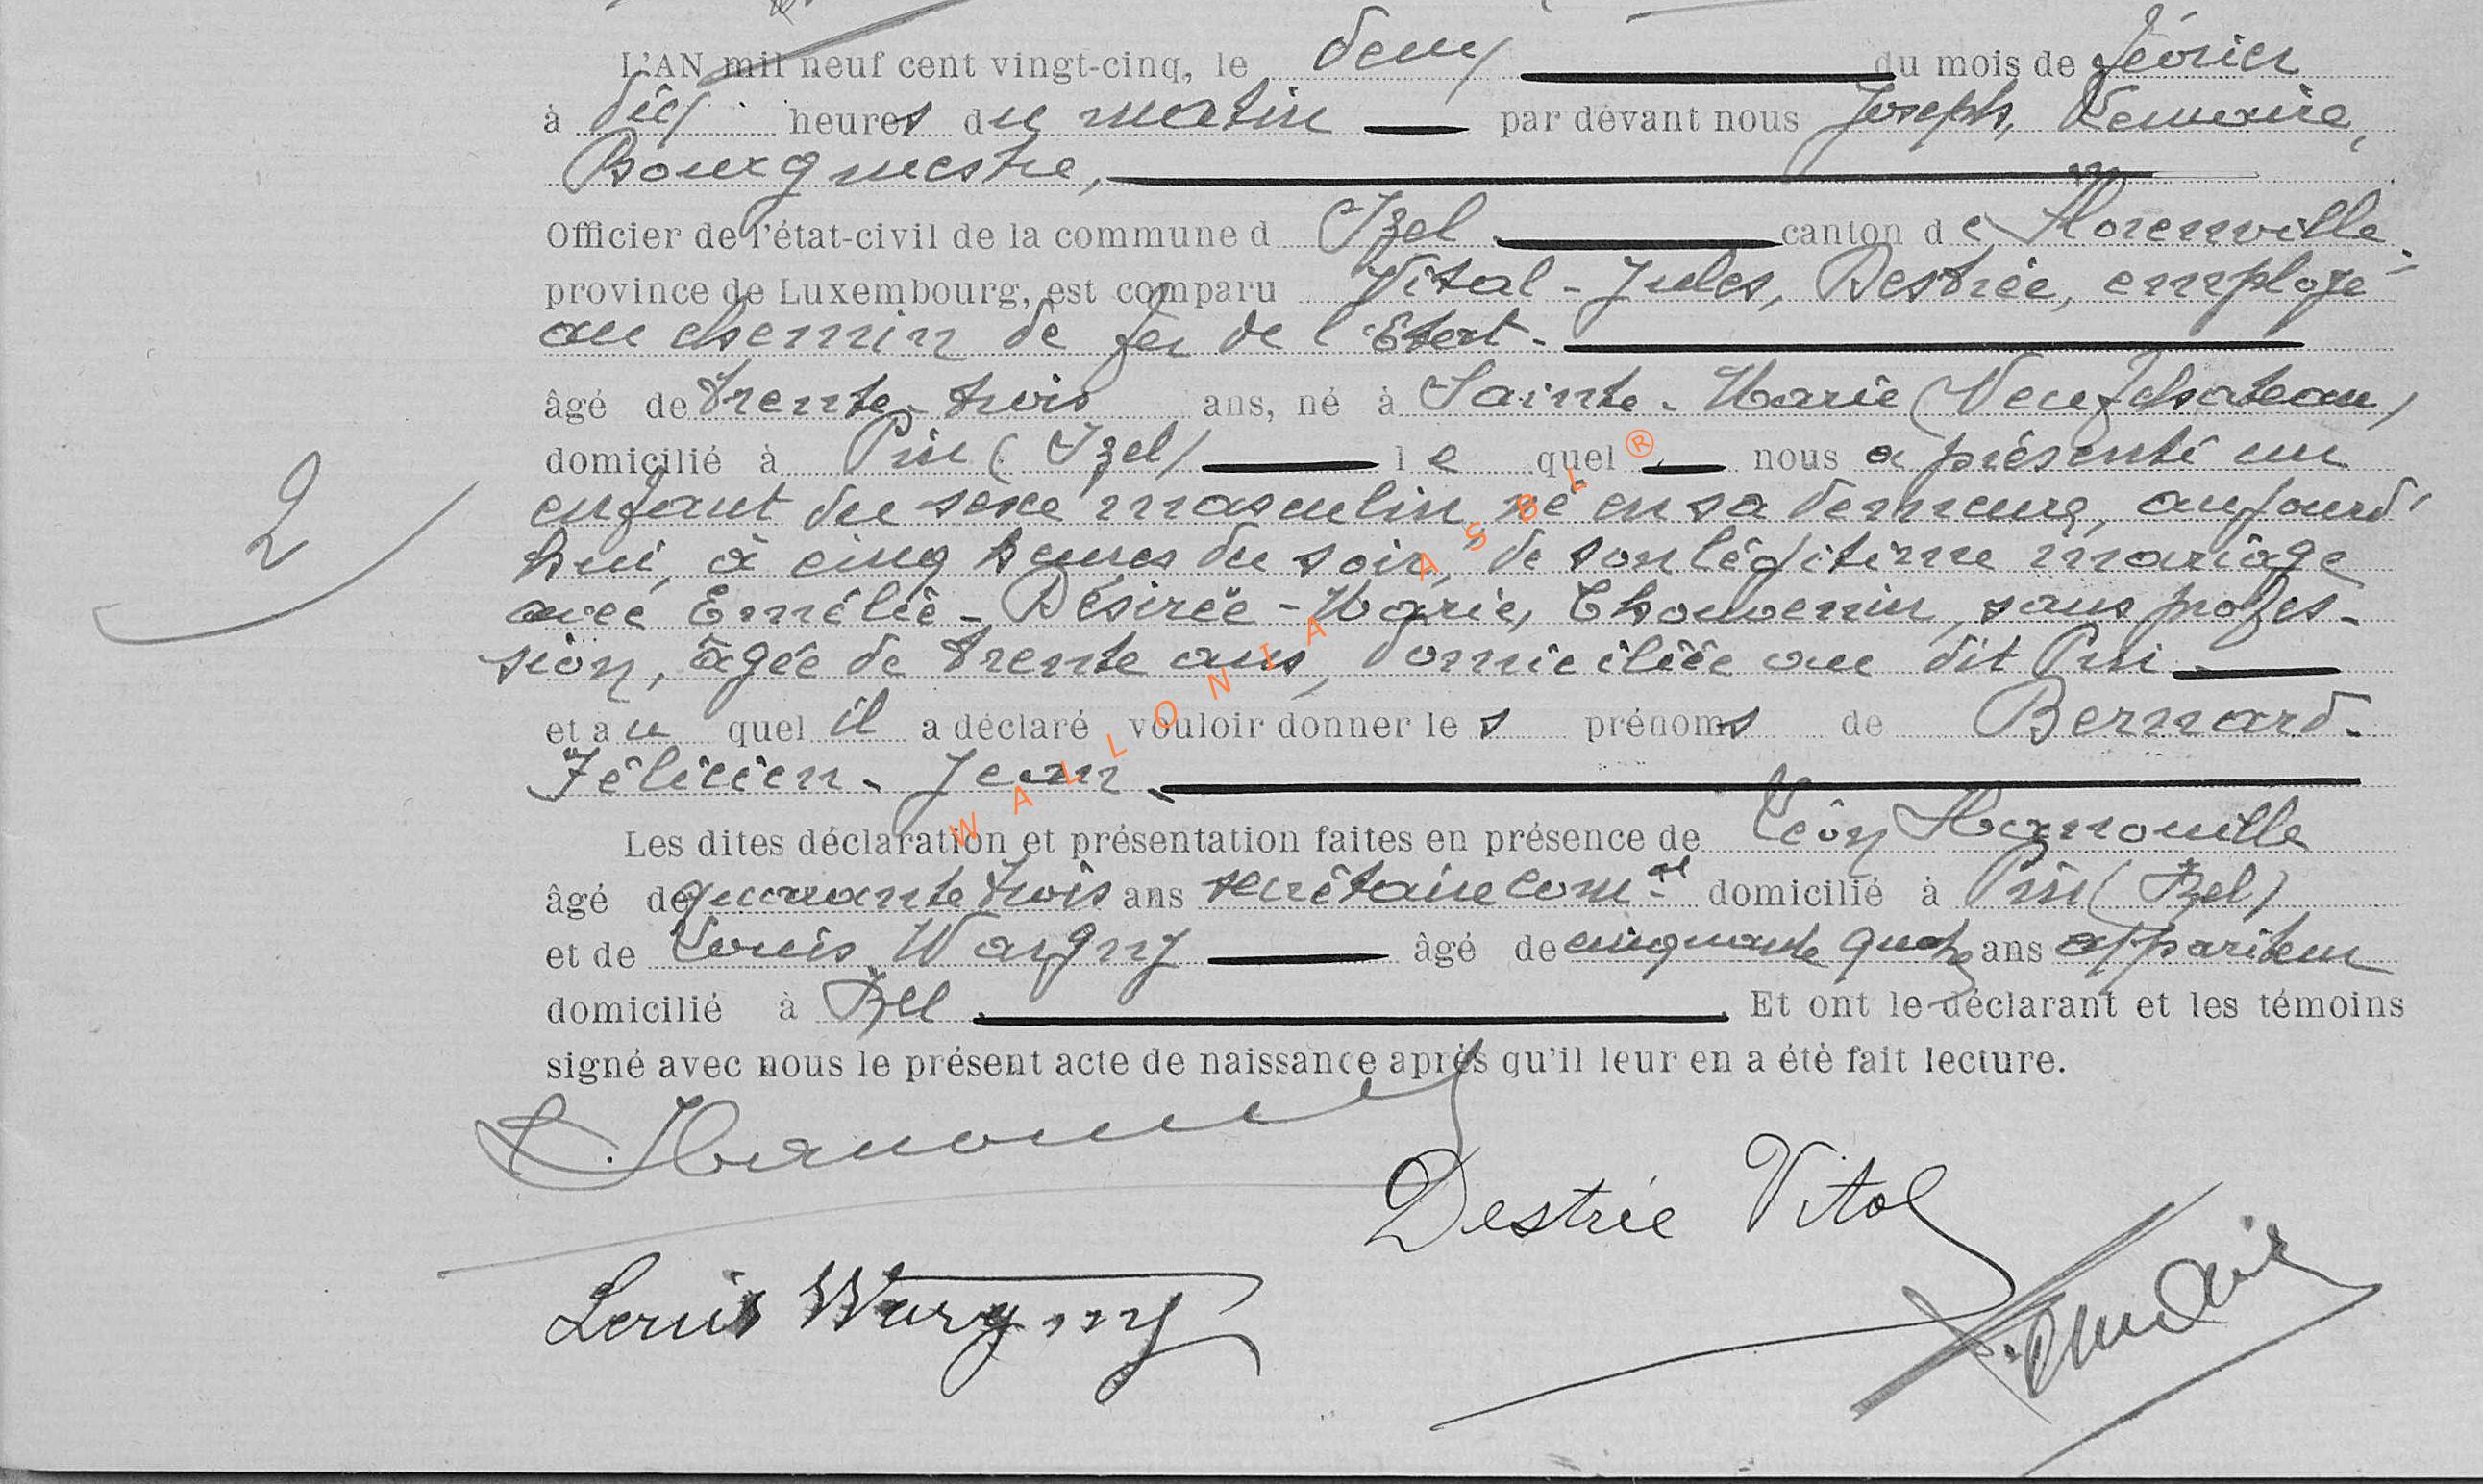 L'AN mil neuf cent vingt-cinq, le deux du mois de février
à dix heures du matin par devant nous Joseph, Lemaire,
Bourgmestre,
Officier de l'état-civil de la commune d Izel canton de Florenville,
province de Luxembourg, est comparu Vital-Jules, Destrée, employé
au chemin de fer de l'Etat.
âgé de trente-trois ans, né à Sainte-Marie (Neufchateau)
domicilié à Pin (Izel) le quel nous a présenté un
enfant du sexe masculin né en sa demeure, aujourd'
hui, à cinq heures du soir, de son légitime mariage
avec Emélie-Désirée-Marie, Thouvenin, sans profes-
sion, âgée de trente ans, domiciliée au dit Pin
et au quel il a déclaré vouloir donner les prénoms de Bernard-
Félicien-Jean
Les dites déclaration et présentation faites en présence de Léon Hanouille
âgé de quarante trois ans secrétaire com.al domicilié à Pin (Izel)
et de Louis Wargny âgé de cinquante quatre ans appariteur
domicilié à Izel. Et ont le déclarant et les témoins
signé avec nous le présent acte de naissance après qu'il leur en a été fait lecture.
2
Destrée Vital
Louis Wargny
J. Lemaire
WALLONIA ASBL ®